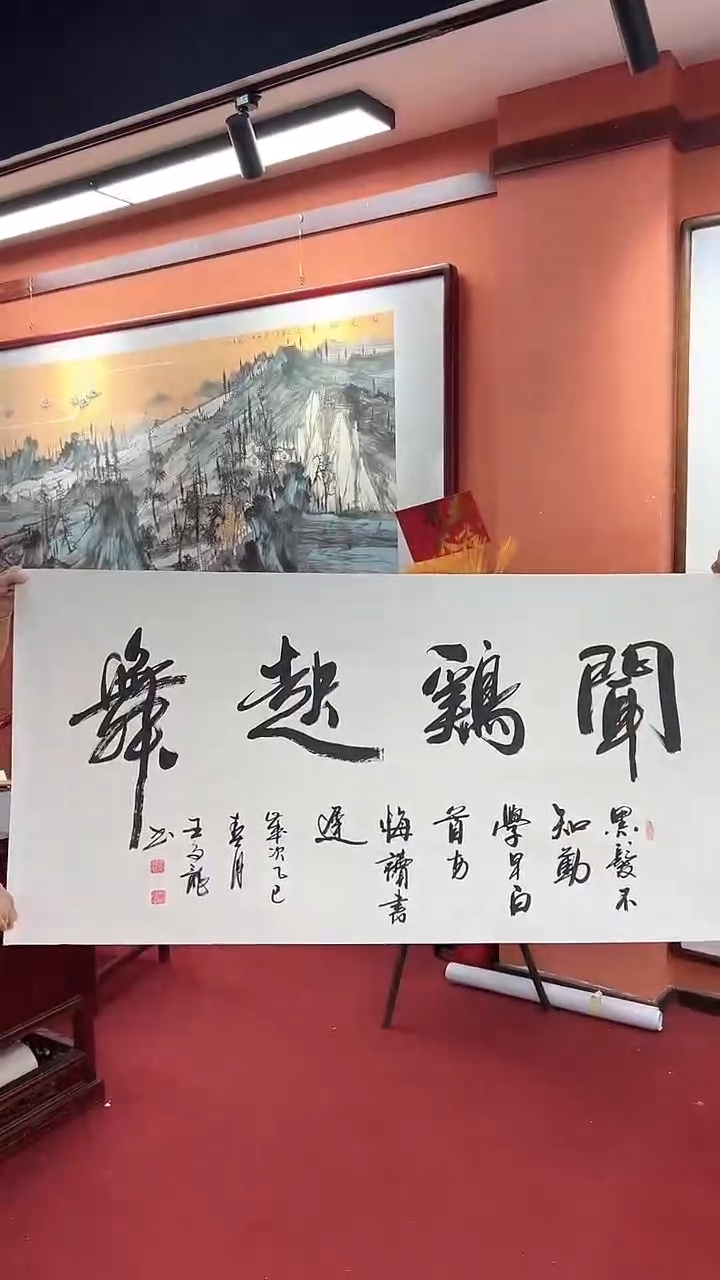 聞鷄起舞
黑髮不
知勤
學早白
首方
悔讀書
遲
歲次乙巳
春月
王
龍
书